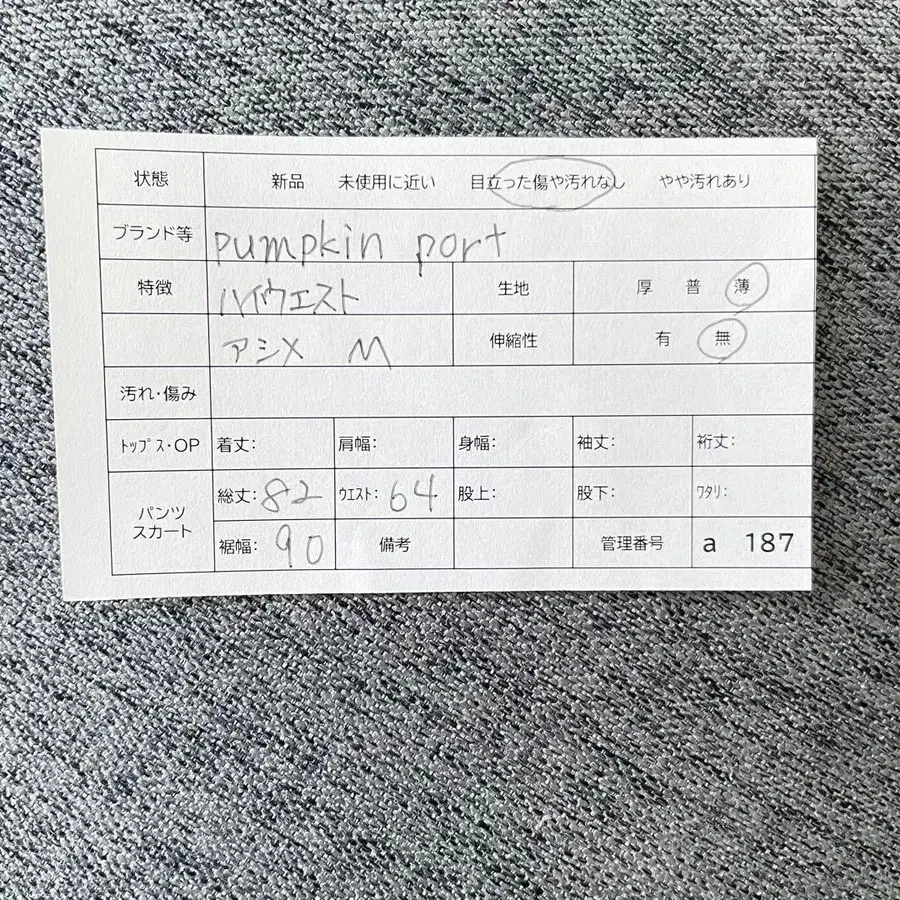 状態 新品 未使用に近い 目立った傷や汚れなし やや汚れあり
ブランド等 pumpkin port
特徴 ハイウエスト 生地 厚 普 薄
アシメ M 伸縮性 有 無
汚れ・傷み
ﾄｯﾌﾟｽ・OP 着丈: 肩幅: 身幅: 袖丈: 裄丈:
パンツ スカート 総丈: 82 ｳｴｽﾄ: 64 股上: 股下: ﾜﾀﾘ:
裾幅: 90 備考 管理番号 a 187